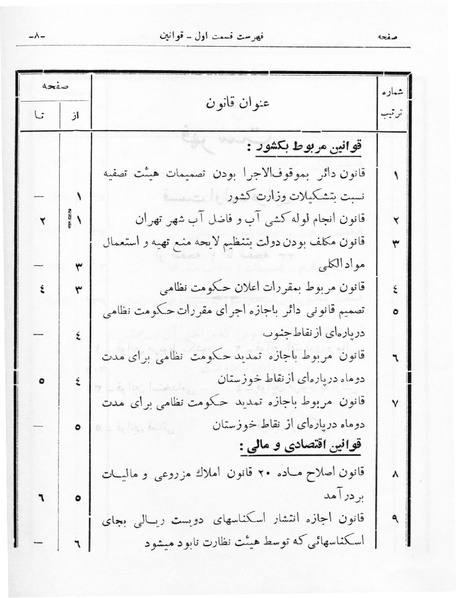 صفحه فهرست قسمت اول - قوانین -۸-
شماره ترتیب عنوان قانون صفحه
از تا
قوانین مربوط بکشور :
۱ قانون دائر بموقوف‌الاجرا بودن تصمیمات هیئت تصفیه
نسبت بتشکیلات وزارت کشور ۱ —
۲ قانون انجام لوله کشی آب و فاضل آب شهر تهران ۱ ۲
۳ قانون مکلف بودن دولت بتنظیم لایحه منع تهیه و استعمال
مواد الکلی ۳ —
۴ قانون مربوط بمقررات اعلان حکومت نظامی ۳ ۴
۵ تصمیم قانونی دائر باجازه اجرای مقررات حکومت نظامی
درپاره‌ای از نقاط جنوب ۴ —
۶ قانون مربوط باجازه تمدید حکومت نظامی برای مدت
دوماه درپاره‌ای از نقاط خوزستان ۴ ۵
۷ قانون مربوط باجازه تمدید حکومت نظامی برای مدت
دوماه درپاره‌ای از نقاط خوزستان ۵ —
قوانین اقتصادی و مالی :
۸ قانون اصلاح ماده ۲۰ قانون املاک مزروعی و مالیات
بردرآمد ۵ ۶
۹ قانون اجازه انتشار اسکناسهای دویست ریالی بجای
اسکناسهائی که توسط هیئت نظارت نابود میشود ۶ —